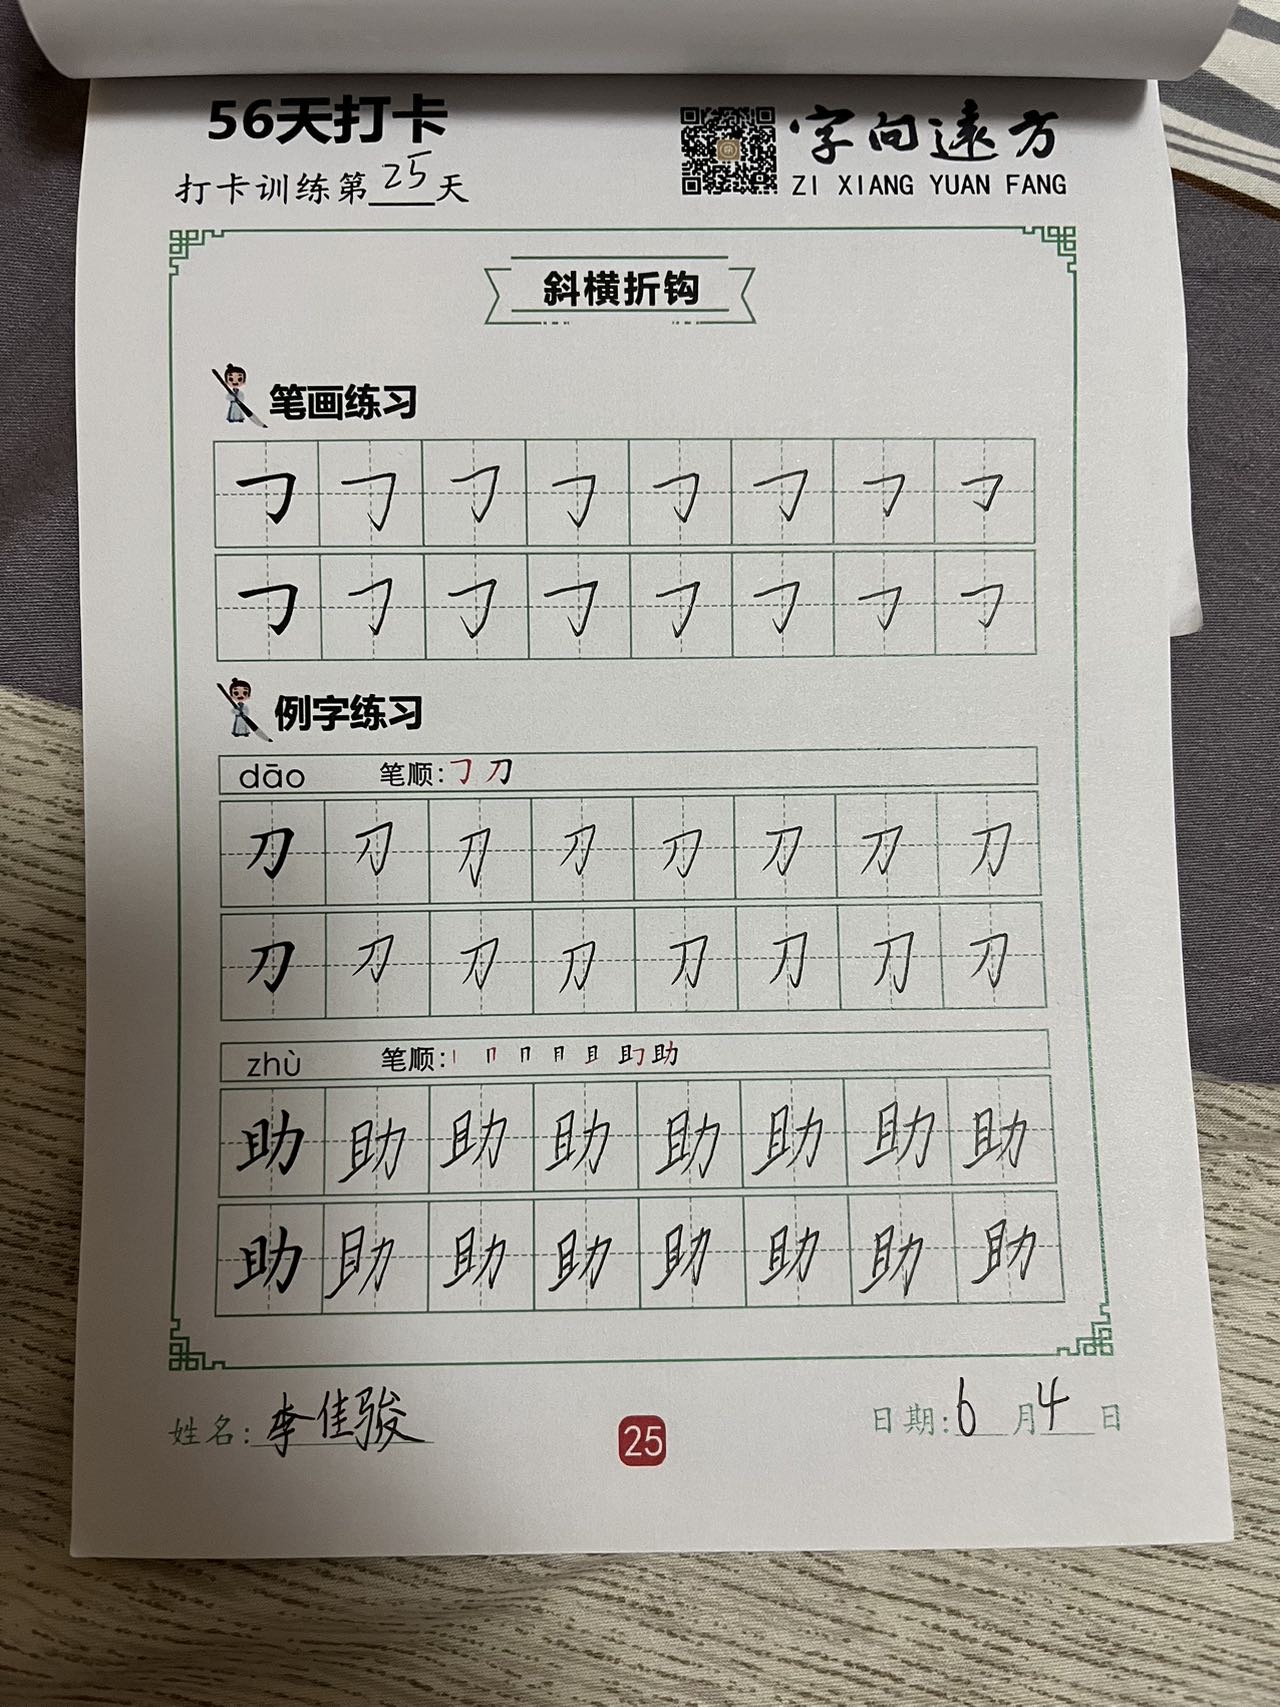 56天打卡
打卡训练第25天
字向遠方
ZI XIANG YUAN FANG
斜横折钩
笔画练习
㇆ ㇆ ㇆ ㇆ ㇆ ㇆ ㇆ ㇆
㇆ ㇆ ㇆ ㇆ ㇆ ㇆ ㇆ ㇆
例字练习
dāo 笔顺:㇆ 刀
刀 刀 刀 刀 刀 刀 刀 刀
刀 刀 刀 刀 刀 刀 刀 刀
zhù 笔顺:丨 冂 冂 月 且 助 助
助 助 助 助 助 助 助 助
助 助 助 助 助 助 助 助
姓名:李佳骏
25
日期:6月4日